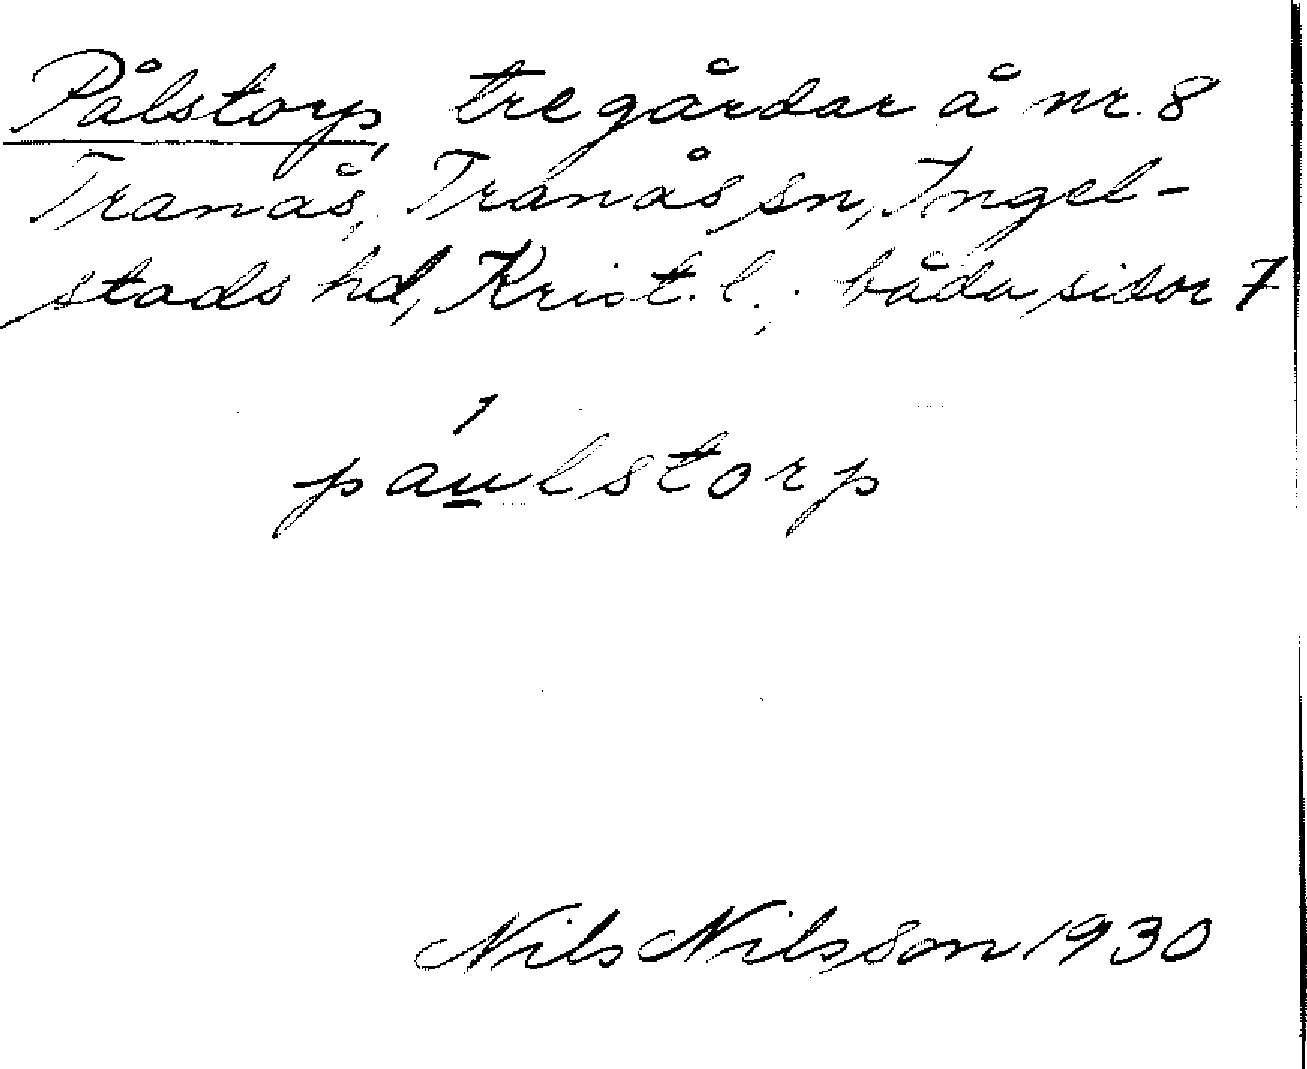 Pålstorp, tre gårdar å nr. 8
Tranås, Tranås sn, Ingel-
stads hd, Krist. l.; båda sidor 7
páu̲lstorp
Nils Nilsson 1930